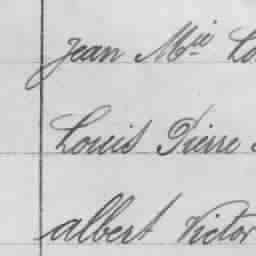 Jean Mie Lo
Louis Pierre
albert Victor